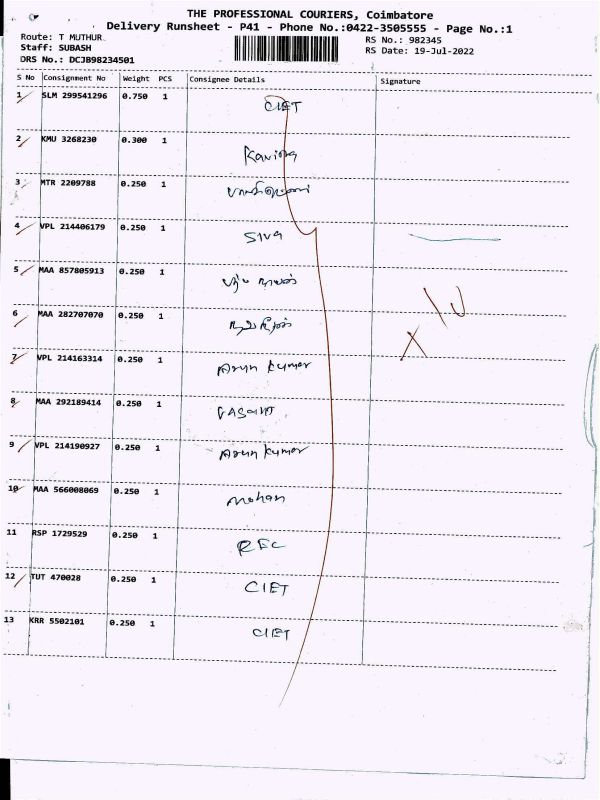 THE PROFESSIONAL COURIERS, Coimbatore
Delivery Runsheet - P41 - Phone No.:0422-3505555 - Page No.:1
Route: T MUTHUR RS No.: 982345
Staff: SUBASH RS Date: 19-Jul-2022
DRS No.: DCJB98234501
S No Consignment No Weight PCS Consignee Details Signature
1 SLM 299541296 0.750 1 CIET
2 KMU 3268230 0.300 1
3 MTR 2209788 0.250 1
4 VPL 214406179 0.250 1 Siva
5 MAA 857805913 0.250 1
6 MAA 282707070 0.250 1
7 VPL 214163314 0.250 1 Arun Kumar
8 MAA 292189414 0.250 1
9 VPL 214190927 0.250 1 Arun Kumar
10 MAA 566008069 0.250 1 Mohan
11 RSP 1729529 0.250 1 REC
12 TUT 470028 0.250 1 CIET
13 KRR 5502101 0.250 1 CIET